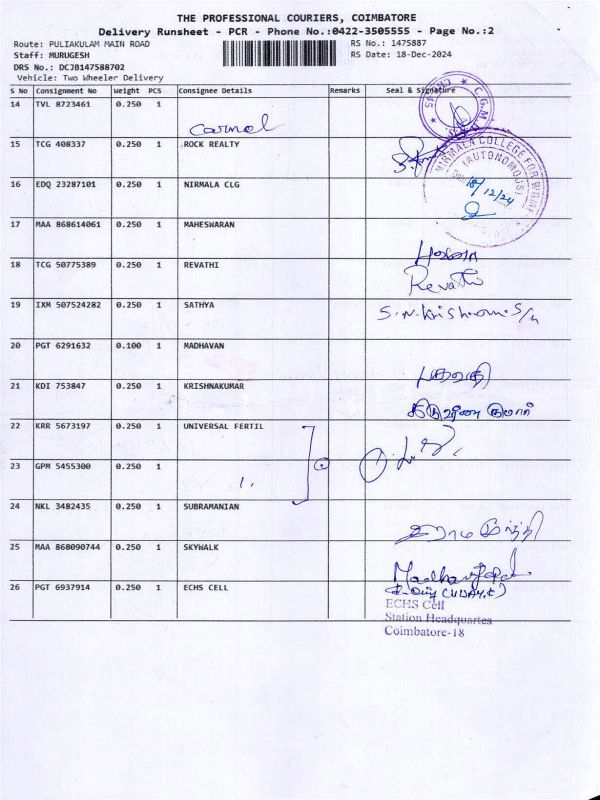 THE PROFESSIONAL COURIERS, COIMBATORE
Delivery Runsheet - PCR - Phone No.:0422-3505555 - Page No.:2
Route: PULIAKULAM MAIN ROAD
Staff: MURUGESH
DRS No.: DCJB147588702
Vehicle: Two Wheeler Delivery
RS No.: 1475887
RS Date: 18-Dec-2024
S No Consignment No Weight PCS Consignee Details Remarks Seal & Signature
14 TVL 8723461 0.250 1
Carmel
15 TCG 408337 0.250 1 ROCK REALTY
16 EDQ 23287101 0.250 1 NIRMALA CLG
NIRMALA COLLEGE FOR WOMEN
(AUTONOMOUS)
18/12/24
17 MAA 868614061 0.250 1 MAHESWARAN
18 TCG 50775389 0.250 1 REVATHI
Revathi
19 IXM 507524282 0.250 1 SATHYA
20 PGT 6291632 0.100 1 MADHAVAN
21 KDI 753847 0.250 1 KRISHNAKUMAR
22 KRR 5673197 0.250 1 UNIVERSAL FERTIL
23 GPM 5455300 0.250 1
24 NKL 3482435 0.250 1 SUBRAMANIAN
25 MAA 868090744 0.250 1 SKYWALK
26 PGT 6937914 0.250 1 ECHS CELL
ECHS Cell
Station Headquartes
Coimbatore-18